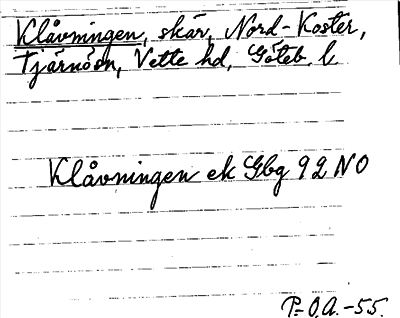 Klåvningen, skär, Nord-Koster,
Tjärnösn, Vette hd, Göteb. l.
Klåvningen ek Gbg 92 NO
P-O.A. -55.